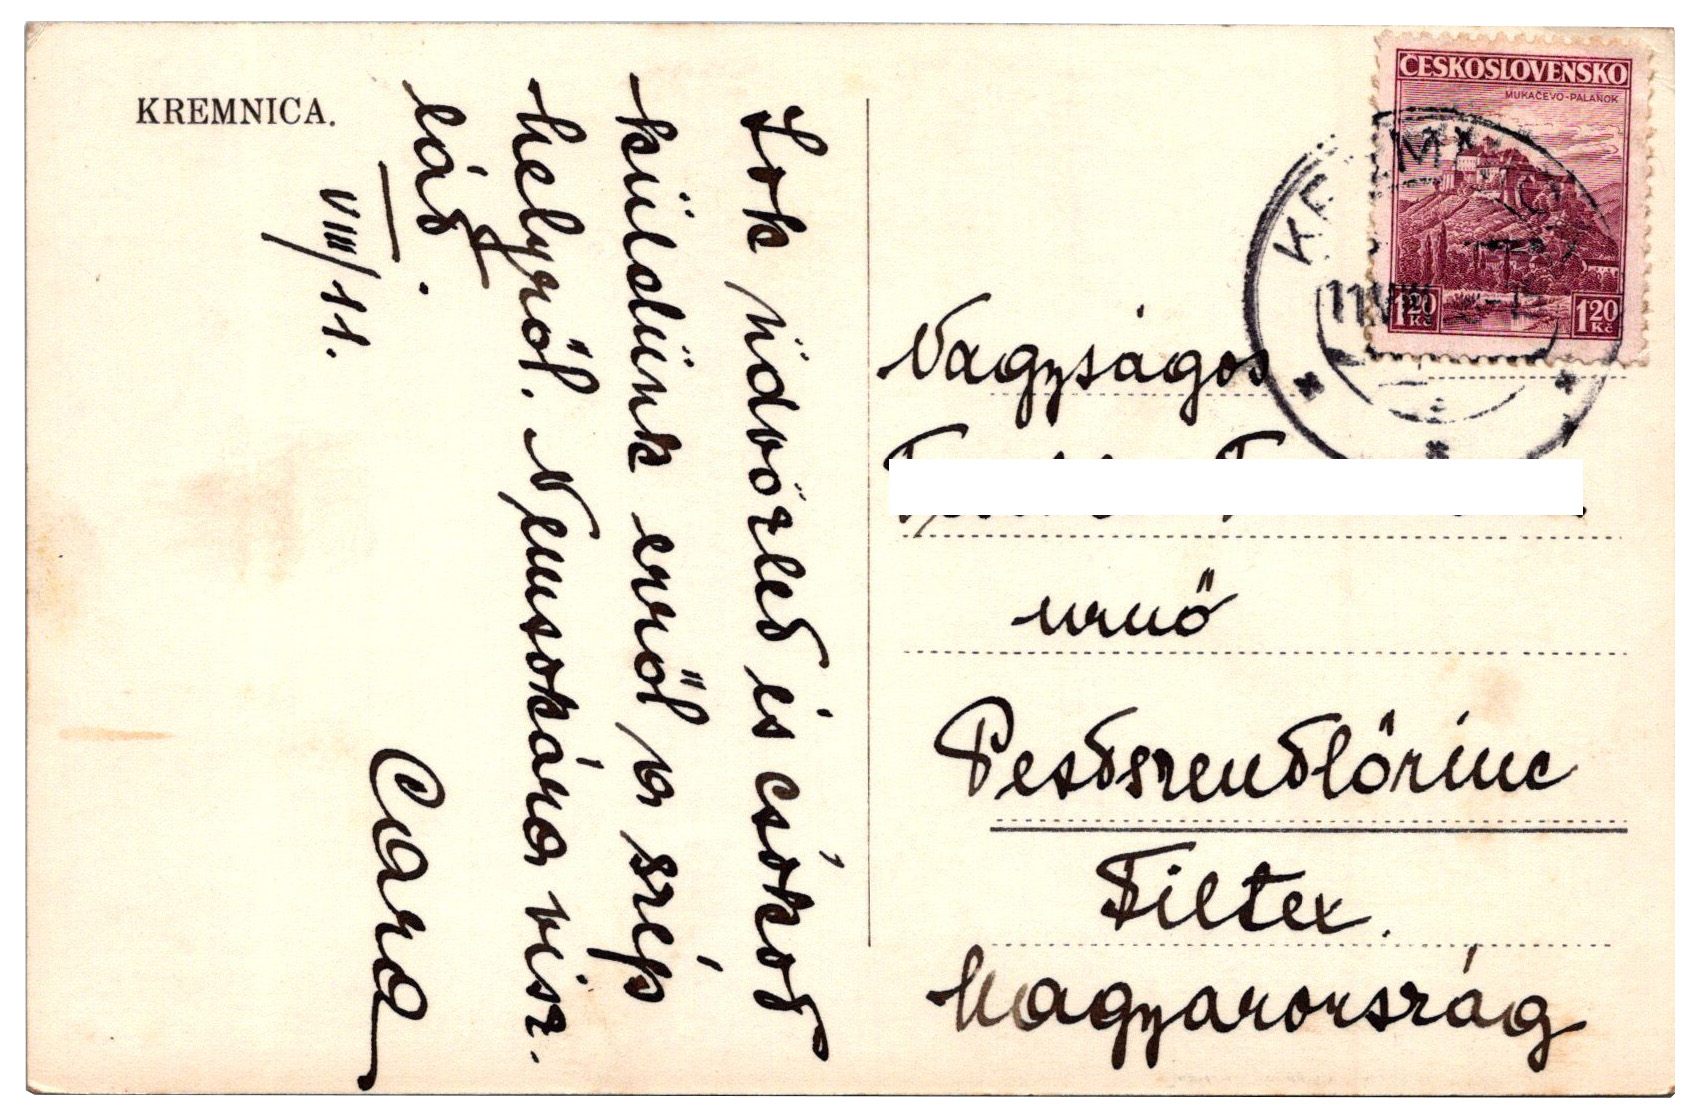 KREMNICA.
Sok üdvözlet és csókot
küldünk erről a szép
helyről. Nemsokára visz.
lát.
VIII/11.
Cara
ČESKOSLOVENSKO
MUKAČEVO-PALANOK
1.20 Kč
1.20 Kč
11 VIII
Nagyságos
urnő
Pestszentlőrinc
Filtex.
Magyarország